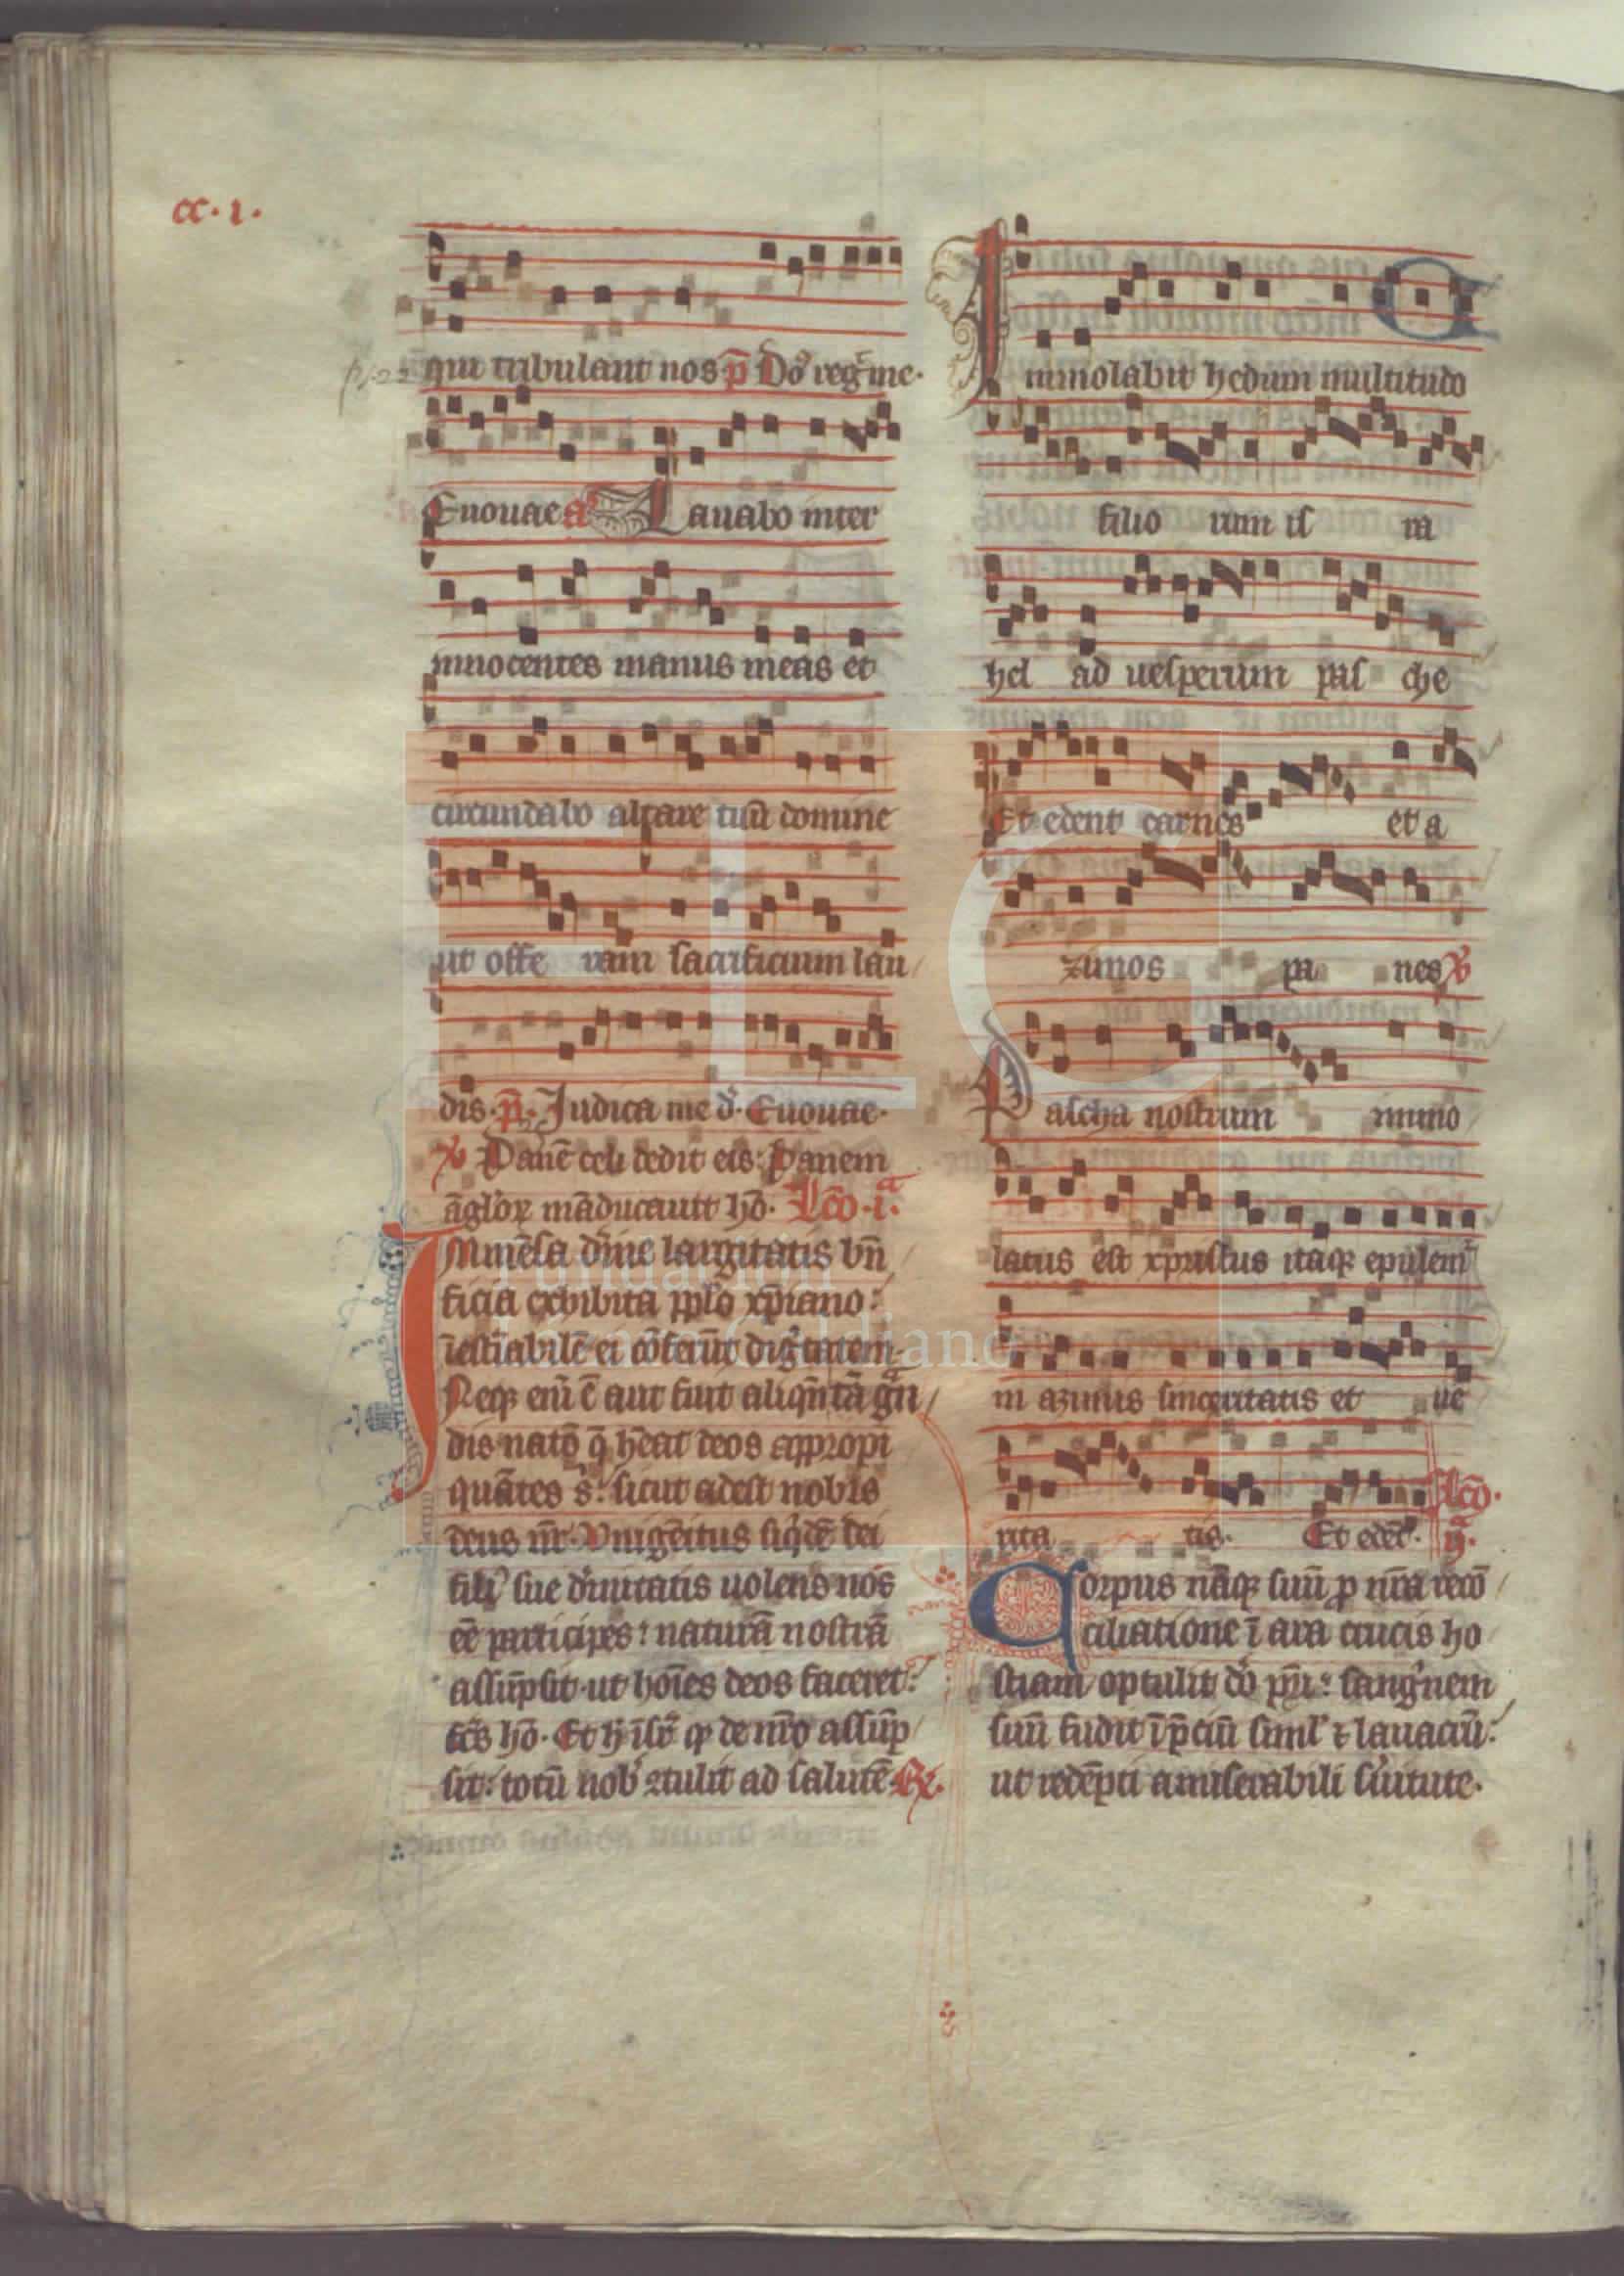 cc·i·
qui tribulant nos p̄ Dōs reg̃ me·
Euouae a Lauabo inter
innocentes manus meas et
circundabo altare tuū domine
ut offe ram sacrificium lau
dis· p̄· Judica me d̄· Euouae·
℣ Panē celi dedit eis: Panem
āgloꝝ māducauit hō· Lc̄o·i·ᵃ
Inmēsa diuīe largitatis bn̄
ficia exhibita pplo xp̄iano:
īestīabilē ei cōferūt dignitatem·
Neqꝫ enī ē aut fuit aliqn̄ tā gn̄
dis natō q̄ hēat deos appropi
quātes s̄ sicut adest nobis
deus nr̄· Vnigēitus siqdē dei
filiꝰ sue diuitatis uolens nos
ēē participes: naturā nostrā
assūpsit ut hoīes deos faceret:
fcs̄ hō· Et h īsuꝑ qꝫ de nr̄o assūp
sit: totū nob ꝯtulit ad salutē· ℟.
Inmolabit hedum multitudo
filio rum is ra
hel ad uesperum pas che
Et edent carnes et a
zimos pa nes ℣
Pascha nostrum immo
latus est xpristus itaqꝫ epulem
in azimis sinceritatis et ue
rita tis· Et edēt· Lc̄o·
ij·
Corpus nāqꝫ suū ꝓ nr̄a recō
ciliatione ī ara crucis ho
stiam optulit dō pr̄i: sanguinem
suū fudit ī p̄ciū siml̄ ⁊ lauacrū:
ut redēpti a miserabili s̄uitute·
FLG
Fundación
Lázaro Galdiano